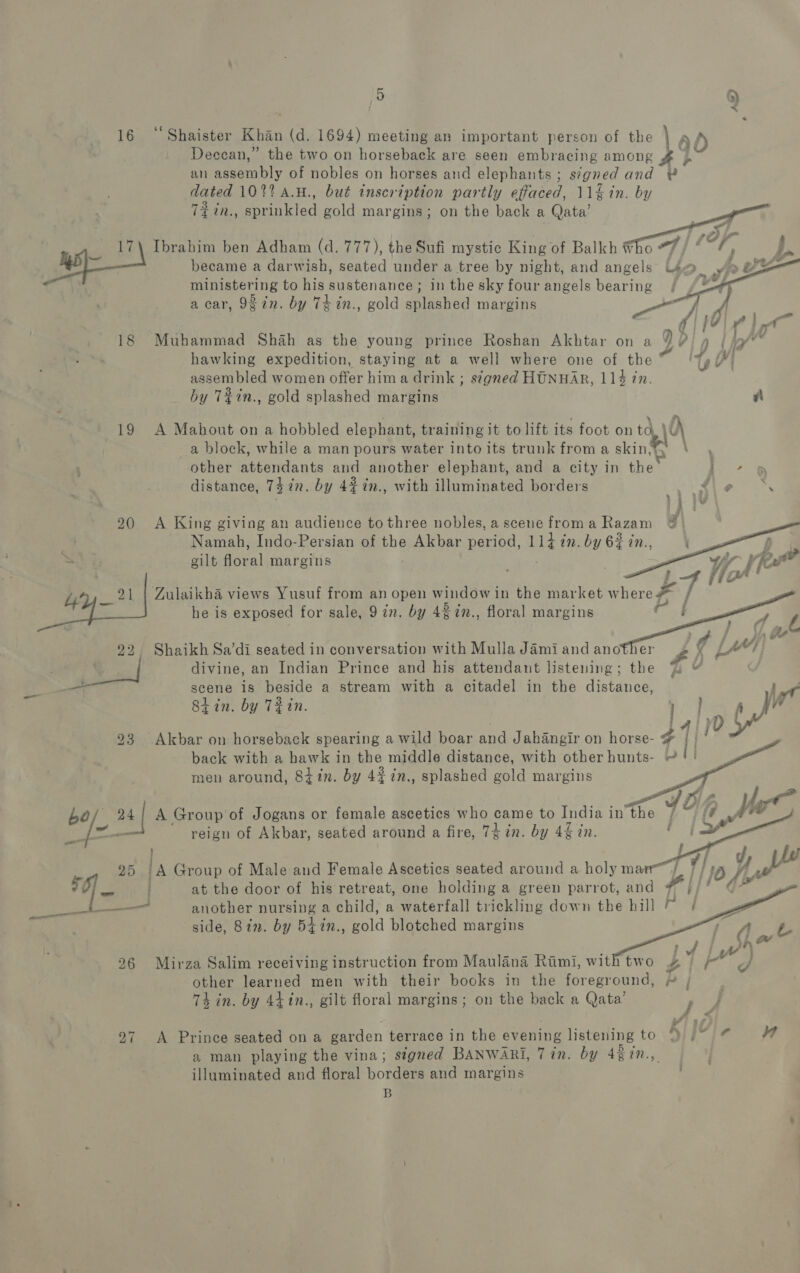 5
16 “Shaister Khán (d. 1694) meeting an important person of the
Deccan,” the two on horseback are seen embracing among
an assembly of nobles on horses and elephants; signed and
dated 10?? A.H., but inscription partly effaced, 11⅝ in. by
7¾ in., sprinkled gold margins; on the back a Qata’
17 Ibrahim ben Adham (d. 777), the Sufi mystic King of Balkh who
became a darwish, seated under a tree by night, and angels
ministering to his sustenance; in the sky four angels bearing
a car, 9⅝ in. by 7¼ in., gold splashed margins
18 Muhammad Sháh as the young prince Roshan Akhtar on a
hawking expedition, staying at a well where one of the
assembled women offer him a drink; signed HÚNHÁR, 11½ in.
by 7¾ in., gold splashed margins
19 A Mahout on a hobbled elephant, training it to lift its foot on to
a block, while a man pours water into its trunk from a skin,
other attendants and another elephant, and a city in the
distance, 7½ in. by 4¾ in., with illuminated borders
20 A King giving an audience to three nobles, a scene from a Razam
Namah, Indo-Persian of the Akbar period, 11¼ in. by 6¾ in.,
gilt floral margins
21 Zulaikhá views Yusuf from an open window in the market where
he is exposed for sale, 9 in. by 4⅝ in., floral margins
22 Shaikh Sa’di seated in conversation with Mulla Jámi and another
divine, an Indian Prince and his attendant listening; the
scene is beside a stream with a citadel in the distance,
8¼ in. by 7¾ in.
23 Akbar on horseback spearing a wild boar and Jahángir on horse-
back with a hawk in the middle distance, with other hunts-
men around, 8¼ in. by 4¾ in., splashed gold margins
60/- 24 A Group of Jogans or female ascetics who came to India in the
reign of Akbar, seated around a fire, 7¼ in. by 4⅝ in.
25 A Group of Male and Female Ascetics seated around a holy man
at the door of his retreat, one holding a green parrot, and
another nursing a child, a waterfall trickling down the hill
side, 8 in. by 5¼ in., gold blotched margins
26 Mirza Salim receiving instruction from Mauláná Rúmi, with two
other learned men with their books in the foreground,
7½ in. by 4¼ in., gilt floral margins; on the back a Qata’
27 A Prince seated on a garden terrace in the evening listening to
a man playing the vina; signed BANWÁRI, 7 in. by 4⅝ in.,
illuminated and floral borders and margins
B